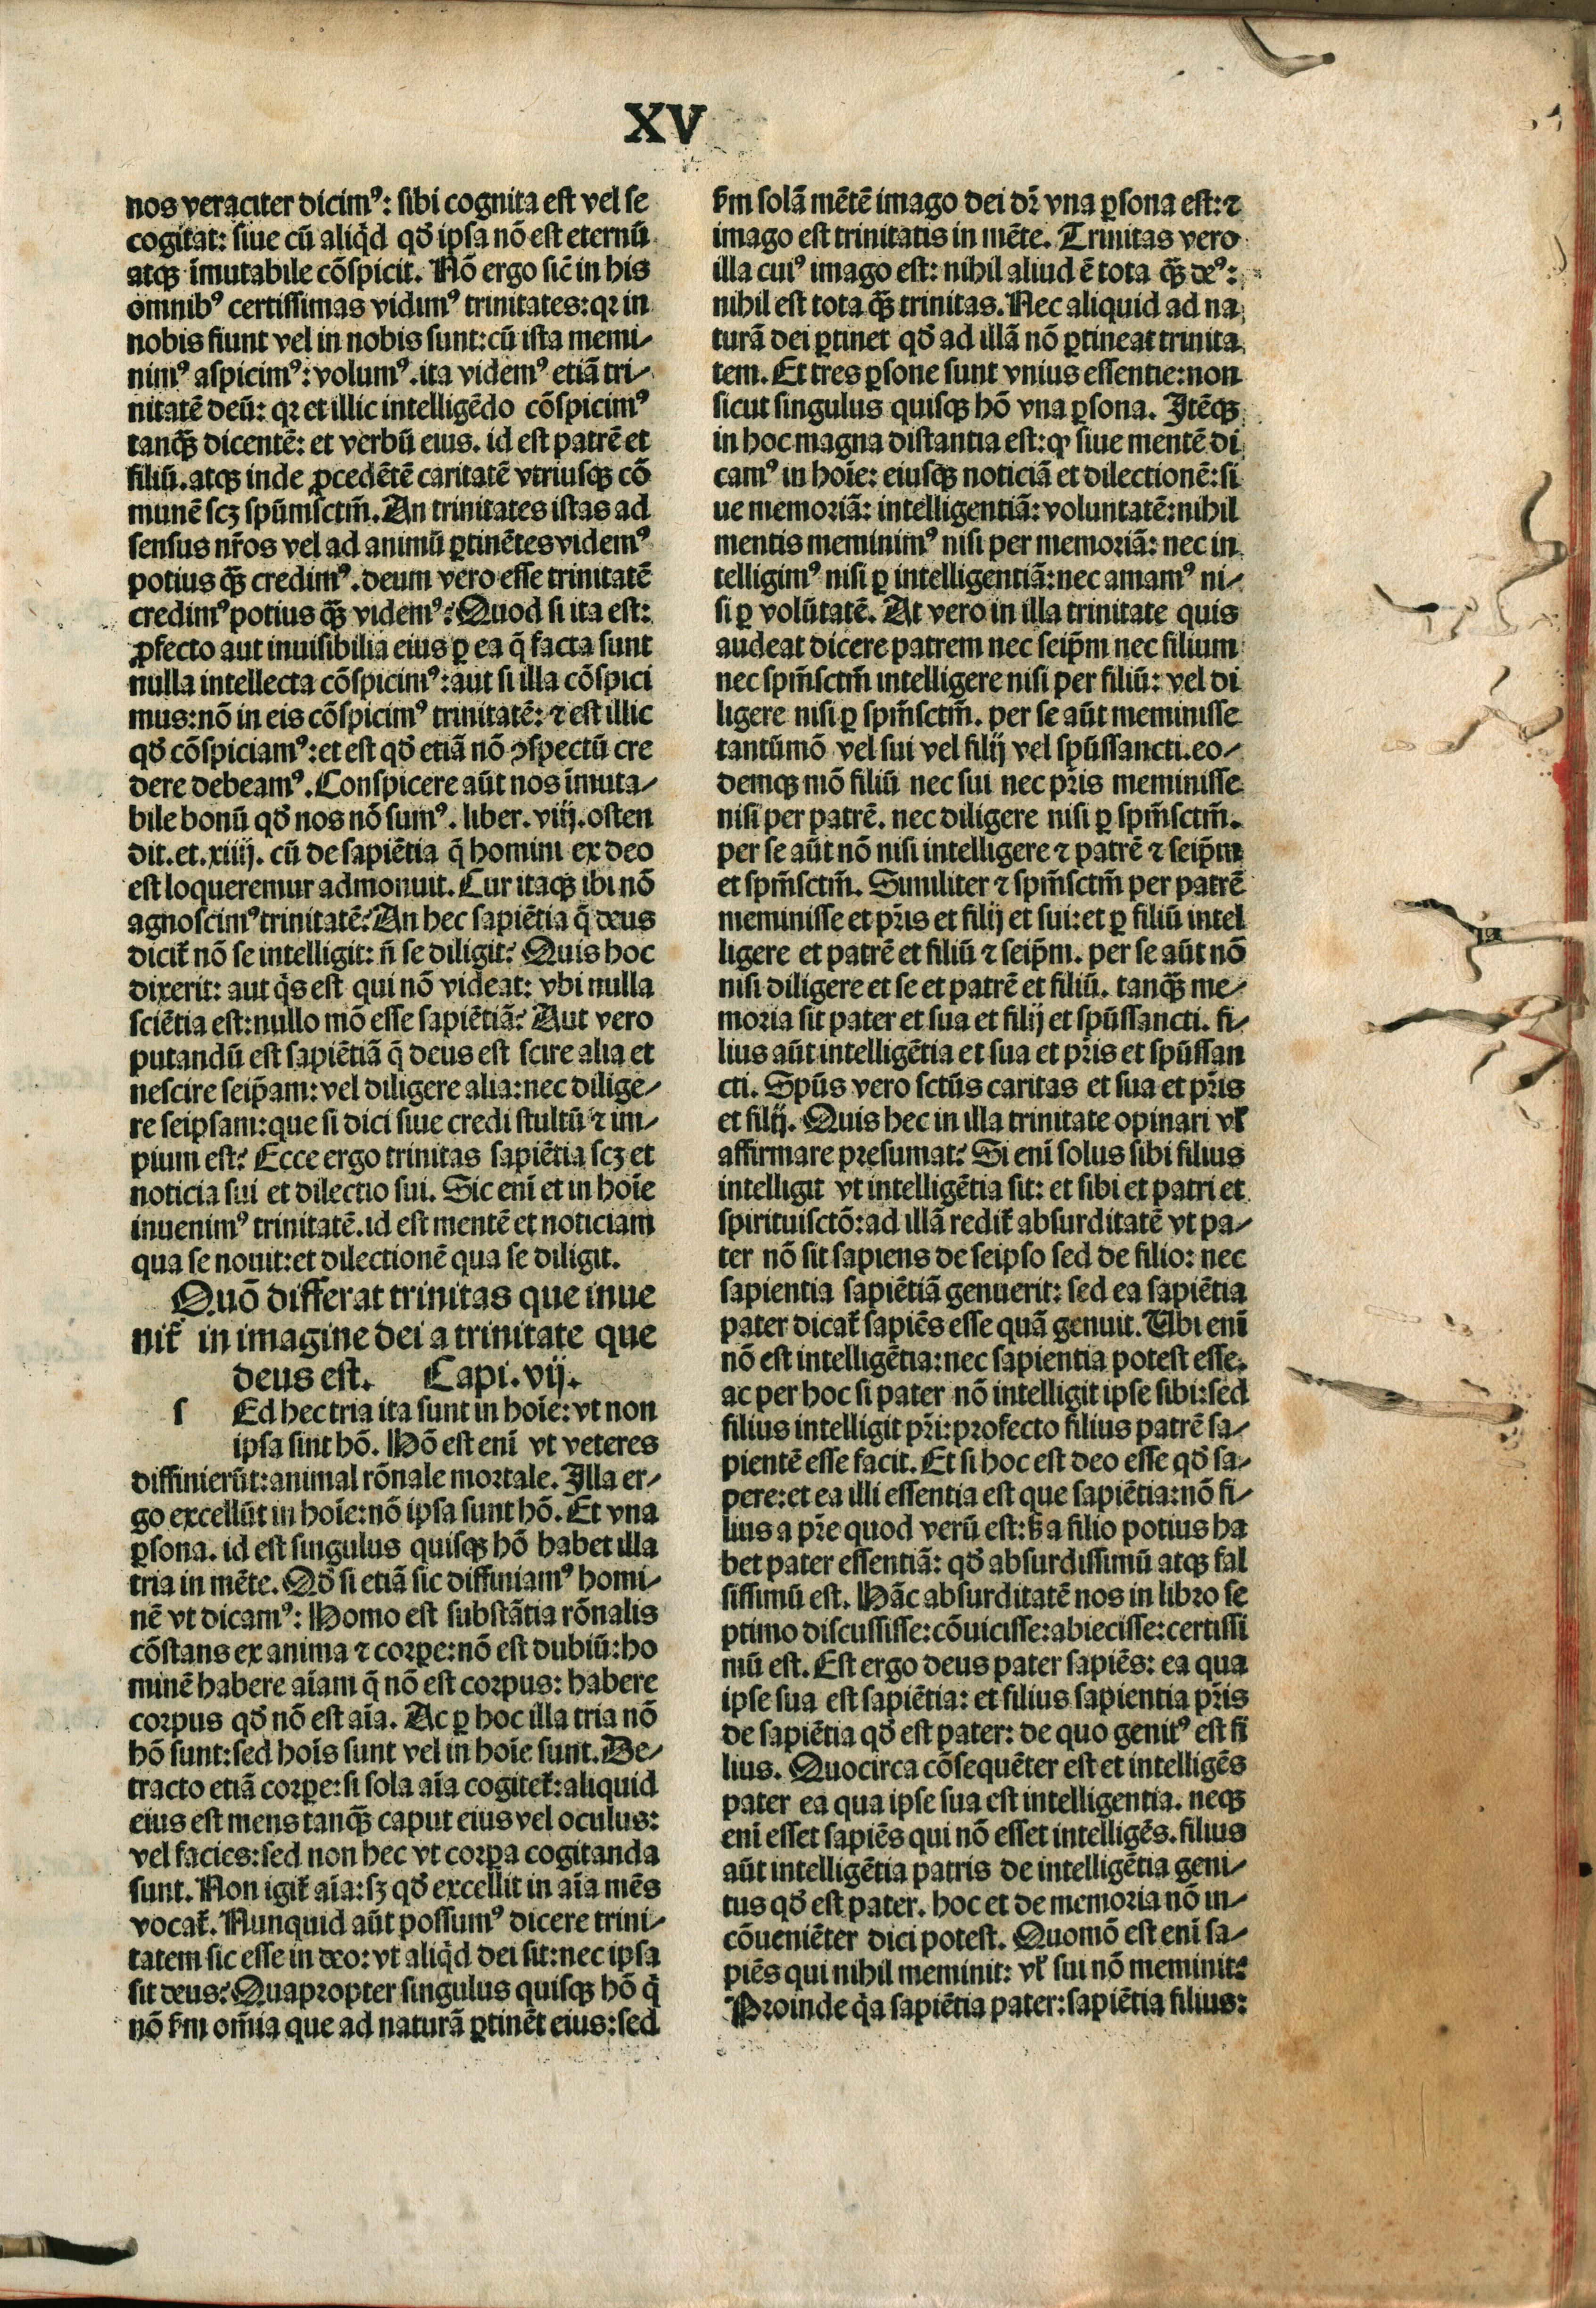 XV
nos veraciter dicimꝰ: sibi cognita est vel se
cogitat: siue cū aliqd̄ qd̄ ipsa nō est eternū
atqꝫ īmutabile cōspicit. Nō ergo sic̄ in his
omnibꝰ certissimas vidimꝰ trinitates: qꝛ in
nobis fiunt vel in nobis sunt: cū ista memi⸗
nimꝰ aspicimꝰ: volumꝰ. ita videmꝰ etiā tri⸗
nitatē deū: qꝛ et illic intelligēdo cōspicimꝰ
tanqꝫ̄ dicentē: et verbū eius. id est patrē et
filiū. atqꝫ inde ꝓcedētē caritatē vtriusqꝫ cō
munē scꝫ spūmsctm̄. An trinitates istas ad
sensus nr̄os vel ad animū ꝑtinētes videmꝰ
potius qꝫ̄ credimꝰ. deum vero esse trinitatē
credimꝰ potius qꝫ̄ videmꝰ? Quod si ita est:
ꝓfecto aut inuisibilia eius ꝑ ea q̄ facta sunt
nulla intellecta cōspicimꝰ: aut si illa cōspici
mus: nō in eis cōspicimꝰ trinitatē: ⁊ est illic
qd̄ cōspiciamꝰ: et est qd̄ etiā nō ꝯspectū cre
dere debeamꝰ. Conspicere aūt nos īmuta⸗
bile bonū qd̄ nos nō sumꝰ. liber. viij. osten
dit. et. xiiij. cū de sapiētia q̄ homini ex deo
est loqueremur admonuit. Cur itaqꝫ ibi nō
agnoscimꝰ trinitatē? An hec sapiētia q̄ deus
dicit᷑ nō se intelligit: n̄ se diligit? Quis hoc
dixerit: aut q̄s est qui nō videat: vbi nulla
sciētia est: nullo mō esse sapiētiā? Aut vero
putandū est sapiētiā q̄ deus est scire alia et
nescire seip̄am: vel diligere alia: nec dilige⸗
re seipsam: que si dici siue credi stultū ⁊ im⸗
pium est? Ecce ergo trinitas sapiētia scꝫ et
noticia sui et dilectio sui. Sic enī et in hoīe
inuenimꝰ trinitatē. id est mentē et noticiam
qua se nouit: et dilectionē qua se diligit.
Quō differat trinitas que inue
nit᷑ in imagine dei a trinitate que
deus est. Capi. vij.
s Ed hec tria ita sunt in hoīe: vt non
ipsa sint hō. Hō est enī vt veteres
diffinierūt: animal rōnale mortale. Illa er⸗
go excellūt in hoīe: nō ipsa sunt hō. Et vna
ꝑsona. id est singulus quisqꝫ hō habet illa
tria in mēte. Qd̄ si etiā sic diffiniamꝰ homi⸗
nē vt dicamꝰ: Homo est substātia rōnalis
cōstans ex anima ⁊ corꝑe: nō est dubiū: ho
minē habere aīam q̄ nō est corpus: habere
corpus qd̄ nō est aīa. Ac ꝑ hoc illa tria nō
hō sunt: sed hoīs sunt vel in hoīe sunt. De⸗
tracto etiā corꝑe: si sola aīa cogitet᷑: aliquid
eius est mens tanqꝫ̄ caput eius vel oculus:
vel facies: sed non hec vt corꝑa cogitanda
sunt. Non igit᷑ aīa: sꝫ qd̄ excellit in aīa mēs
vocat᷑. Nunquid aūt possumꝰ dicere trini⸗
tatem sic esse in deo: vt aliqd̄ dei sit: nec ipsa
sit deus? Quapropter singulus quisqꝫ hō q̄
nō ẜm om̄ia que ad naturā ꝑtinēt eius: sed
ẜm solā mētē imago dei dr̄ vna ꝑsona est: ⁊
imago est trinitatis in mēte. Trinitas vero
illa cuiꝰ imago est: nihil aliud ē tota qꝫ̄ deꝰ:
nihil est tota qꝫ̄ trinitas. Nec aliquid ad na
turā dei ꝑtinet qd̄ ad illā nō ꝑtineat trinita
tem. Et tres ꝑsone sunt vnius essentie: non
sicut singulus quisqꝫ hō vna ꝑsona. Itēqꝫ
in hoc magna distantia est: ꝙ siue mentē di
camꝰ in hoīe: eiusqꝫ noticiā et dilectionē: si
ue memoriā: intelligentiā: voluntatē: nihil
mentis meminimꝰ nisi per memoriā: nec in
telligimꝰ nisi ꝑ intelligentiā: nec amamꝰ ni⸗
si ꝑ volūtatē. At vero in illa trinitate quis
audeat dicere patrem nec seip̄m nec filium
nec spm̄sctm̄ intelligere nisi per filiū: vel di
ligere nisi ꝑ spm̄sctm̄. per se aūt meminisse
tantūmō vel sui vel filij vel spūssancti. eo⸗
demqꝫ mō filiū nec sui nec pr̄is meminisse
nisi per patrē. nec diligere nisi ꝑ spm̄sctm̄.
per se aūt nō nisi intelligere ⁊ patrē ⁊ seip̄m
et spm̄sctm̄. Similiter ⁊ spm̄sctm̄ per patrē
meminisse et pr̄is et filij et sui: et ꝑ filiū intel
ligere et patrē et filiū ⁊ seip̄m. per se aūt nō
nisi diligere et se et patrē et filiū. tanqꝫ̄ me⸗
moria sit pater et sua et filij et spūssancti. fi⸗
lius aūt intelligētia et sua et pr̄is et spūssan
cti. Spūs vero sctūs caritas et sua et pr̄is
et filij. Quis hec in illa trinitate opinari vł
affirmare presumat? Si enī solus sibi filius
intelligit vt intelligētia sit: et sibi et patri et
spirituisctō: ad illā redit᷑ absurditatē vt pa⸗
ter nō sit sapiens de seipso sed de filio: nec
sapientia sapiētiā genuerit: sed ea sapiētia
pater dicat᷑ sapiēs esse quā genuit. Ubi enī
nō est intelligētia: nec sapientia potest esse.
ac per hoc si pater nō intelligit ipse sibi: sed
filius intelligit pr̄i: profecto filius patrē sa⸗
pientē esse facit. Et si hoc est deo esse qd̄ sa⸗
pere: et ea illi essentia est que sapiētia: nō fi⸗
lius a pr̄e quod verū est: sꝫ a filio potius ha
bet pater essentiā: qd̄ absurdissimū atqꝫ fal
sissimū est. Hāc absurditatē nos in libro se
ptimo discussisse: cōuicisse: abiecisse: certissi
mū est. Est ergo deus pater sapiēs: ea qua
ipse sua est sapiētia: et filius sapientia pr̄is
de sapiētia qd̄ est pater: de quo genitꝰ est fi
lius. Quocirca cōsequēter est et intelligēs
pater ea qua ipse sua est intelligentia. neqꝫ
enī esset sapiēs qui nō esset intelligēs. filius
aūt intelligētia patris de intelligētia geni⸗
tus qd̄ est pater. hoc et de memoria nō in⸗
cōueniēter dici potest. Quomō est enī sa⸗
piēs qui nihil meminit: vł sui nō meminit?
Proinde q̄a sapiētia pater: sapiētia filius: